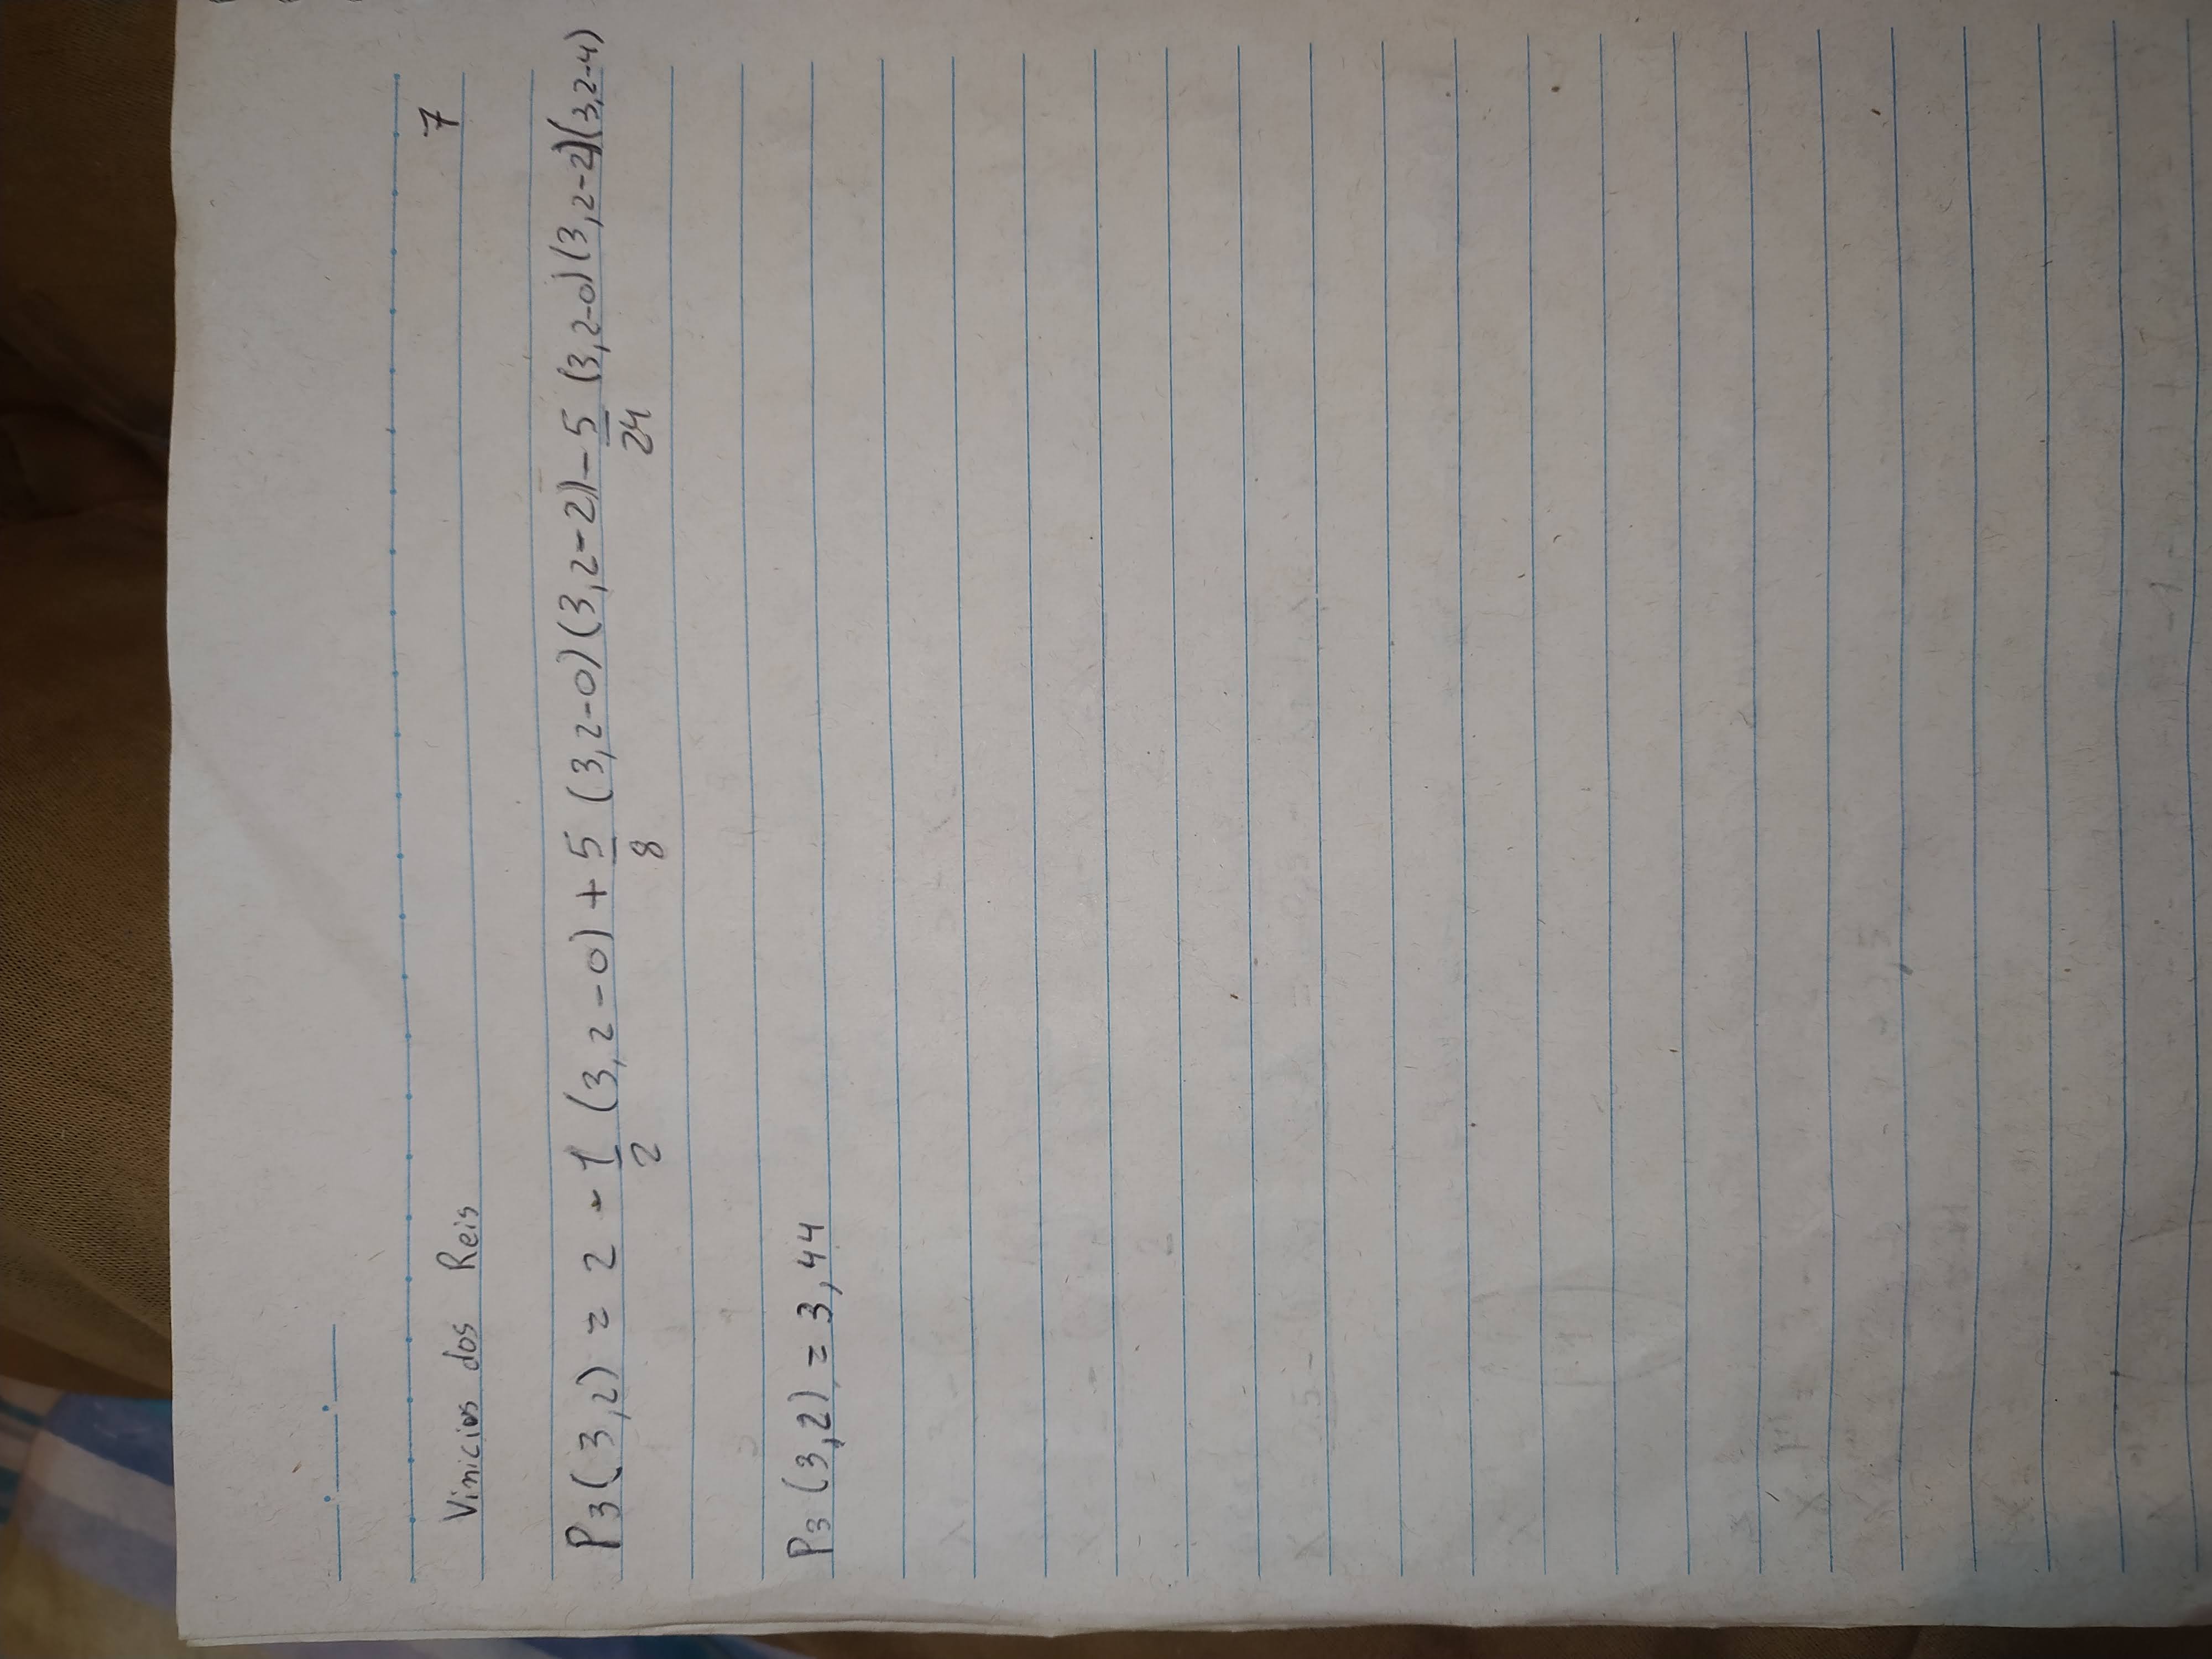 Vinicios dos Reis 7
P3(3,2) = 2 - 1/2 (3,2-0) + 5/8 (3,2-0)(3,2-2) - 5/24 (3,2-0)(3,2-2)(3,2-4)
P3 (3,2) = 3,44